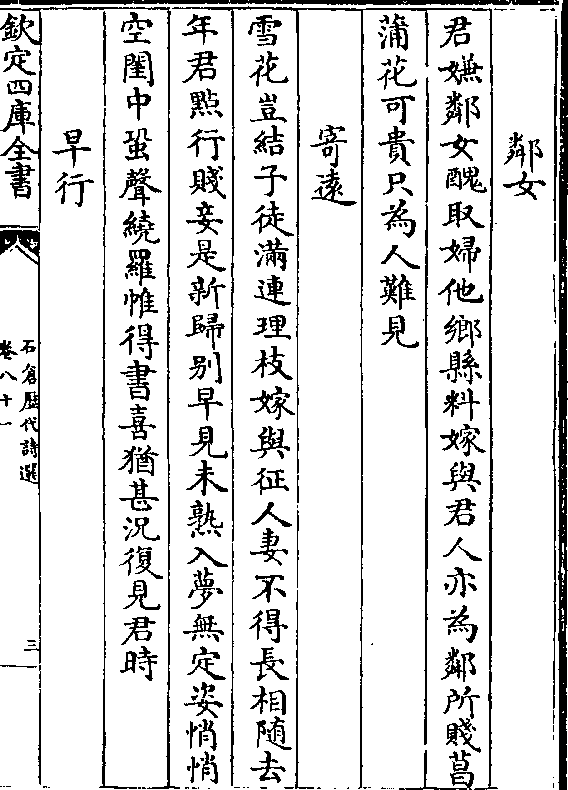 鄰女
君嫌鄰女醜取婦他鄉縣料嫁與君人亦為鄰所賤菖
蒲花可貴只為人難見
寄逺
雪花豈結子徒滿連理枝嫁與征人妻不得長相随去
年君㸃行賤妾是新歸别早見未熟入夢無定姿悄悄
空閨中蛩聲繞羅帷得書喜猶甚況復見君時
早行
欽定四庫全書
石倉歴代詩選
卷八十一
三